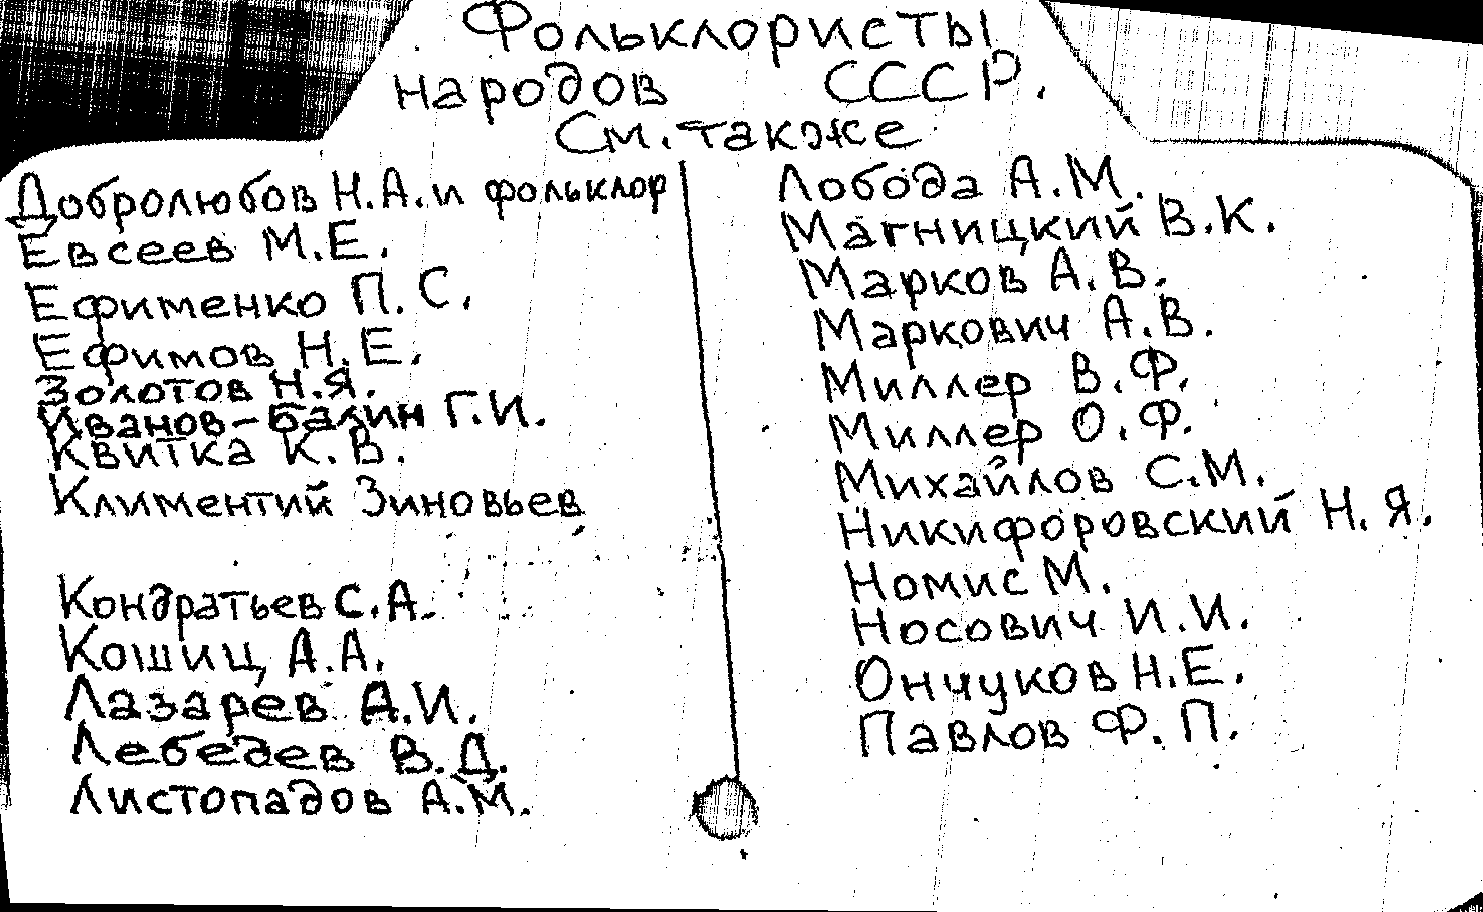 Фольклористы
народов СССР.
См. также
Добролюбов Н.А. и фольклор
Евсеев М.Е.
Ефименко П.С.
Ефимов Н.Е.
Золотов Н.Я.
Иванов-Балин Г.И.
Квитка К.В.
Климентий Зиновьев
Кондратьев С.А.
Кошиц А.А.
Лазарев А.И.
Лебедев В.Д.
Листопадов А.М.
Лобода А.М.
Магницкий В.К.
Марков А.В.
Маркович А.В.
Миллер В.Ф.
Миллер О.Ф.
Михайлов С.М.
Никифоровский Н.Я.
Номис М.
Носович И.И.
Ончуков Н.Е.
Павлов Ф.П.